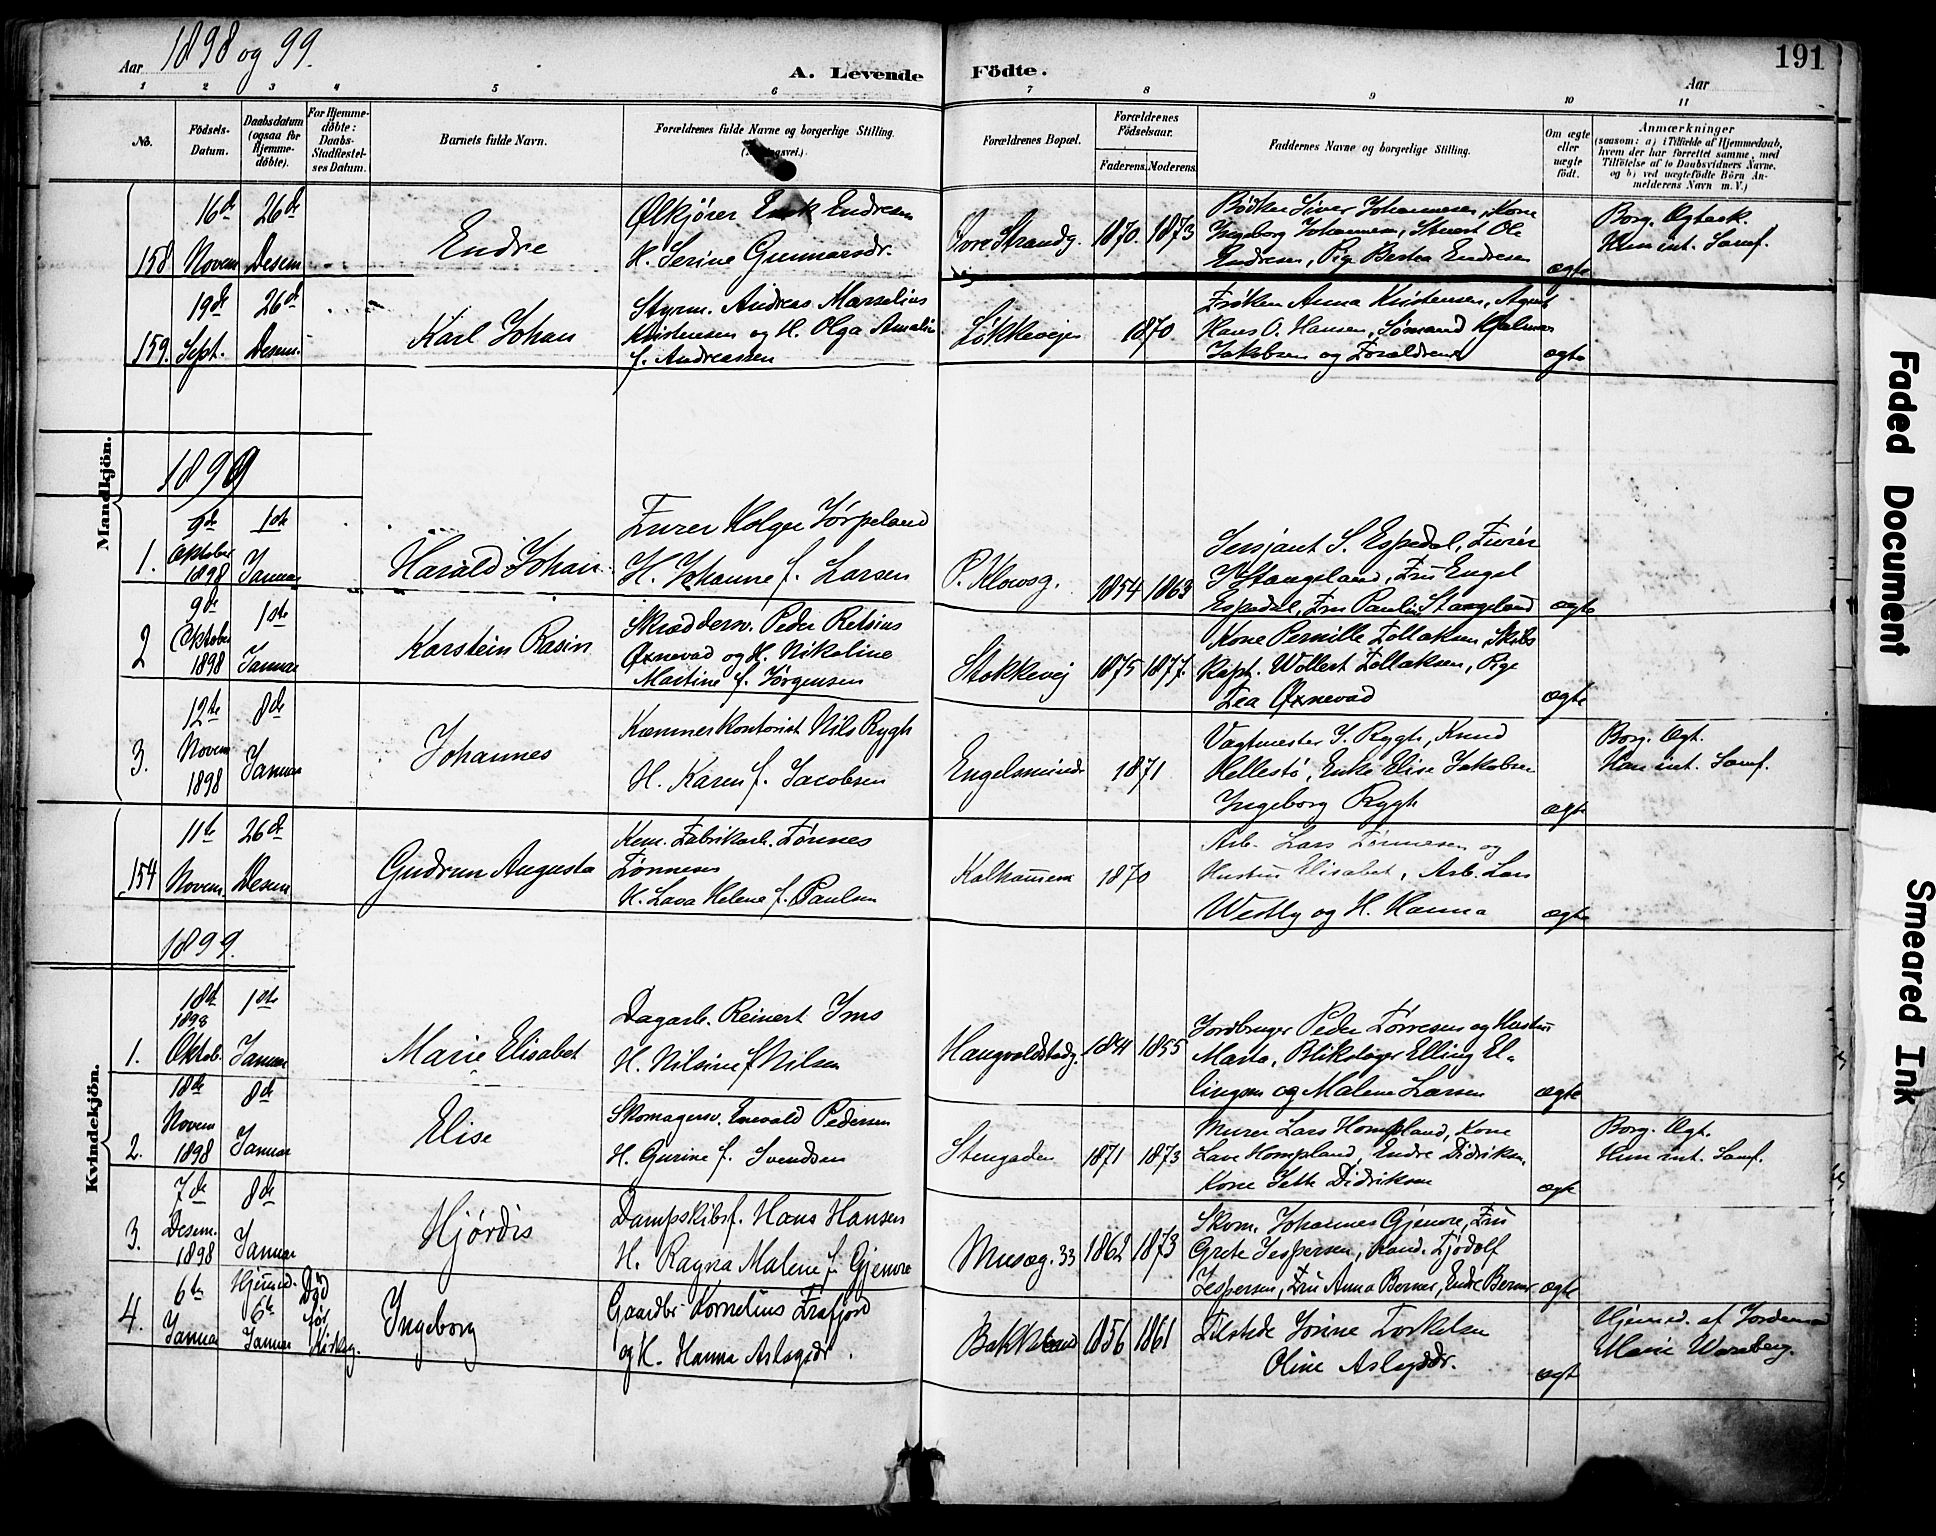 Aar 1898 og 99.
A. Levende Födte.
Aar
191
1 2 3 4 5 6 7 8 9 10 11
No.
Födsels-
Datum.
Daabsdatum
(ogsaa for
Hjemme-
døbte).
For Hjemme-
døbte:
Daabs-
Stadfæstel-
ses Datum.
Barnets fulde Navn.
Forældrenes fulde Navne og borgerlige Stilling.
Forældrenes Bopæl.
Forældrenes
Födselsaar.
Faderens. Moderens.
Faddernes Navne og borgerlige Stilling.
Om ægte
eller
uægte
födt.
Anmærkninger
(saasom: a) i Tilfælde af Hjemmedaab,
hvem der har forrettet samme, med
Tilföielse af to Daabsvidners Navne,
og b) ved uægtefödte Börn An-
melderens Navn m. V.)
Mandkjön.
158
16de
Novem
26de
Desem
Endre
Ølkjører Enok Endresen
H. Serine Gunnarsdr.
Øvre Strandg.
1870. 1873
Bødker Siver Johannesen, Kone
Ingeborg Johannesen, Stuert Ole
Endresen, Pige Bertha Endresen
ægte
Borg. Ægtesk.
Hun int. Samf.
159.
19de
Sept.
26de
Desem.
Karl Johan
Styrm. Andreas Marselius
Kristensen og H. Olga Amalie
f. Andreassen
Løkkevejen
1870
Frøken Anna Kristensen, Agent
Hans O. Hansen, Sømand Hjalmar
Jakobsen og Forældrene
ægte
1899
1.
9de
Oktober
1898
1ste
Januar
Harald Johan
Furer Holger Jørpeland
H. Johanne f. Larsen
P. Klowsg.
1854 1863
Sersjant S. Espedal, Furér
Stangeland, Fru Engel
Espedal, Fru Pauline Stangeland
ægte
2
9de
Oktober
1898
1ste
Januar
Karstein Rasin
Skræddersv. Peder Retsius
Øxnevad og H. Nikoline
Martine f. Jørgensen
Stokkevej
1875 1877.
Kone Pernille Tollaksen, Skibs
Kapt. Wollert Tollaksen, Pige
Lea Øxnevad
ægte
3.
12te
Novem
1898
8de
Januar
Johannes
Kæmnerkontorist Nils Rygh
H. Karen f. Jacobsen
Engelsminde
1871
Vagtmester S. Rygh, Knud
Hellestø, Enke Elise Jakobsen
Ingeborg Rygh
ægte
Borg. Ægt.
Han int. Samf.
154
11te
Novem.
26de
Desem
Gudrun Augusta
Kem. Fabrikarb. Tønnes
Tønnesen
H. Lava Helene f. Paulsen
Kalhammern
1870
Arb. Lars Tønnesen og
Hustru Elisabet, Arb. Lars
Westby og H. Hanna
ægte
1899.
Kvindekjön.
1.
18de
1898
Oktob.
1ste
Januar
Marie Elisabet
Dagarb. Reinert Ims
H. Nilsine f Nilsen
Haugvaldstadg.
1854 1855
Jordbruger Peder Tørresen og Hustru
Marta, Blikslager Elling El-
lingsen og Malene Larsen
ægte
2.
18de
Novem
1898
8de
Januar
Elise
Skomagersv. Enevald Pedersen
H. Gurine f. Svendsen
Stengaden
1871 1873
Murer Lars Hompland, Kone
Lave Hompland, Endre Didriksen
Kone Sette Didriksen
ægte
Borg. Ægt.
Hun int. Samf.
3.
7de
Desem.
1898
8de
Januar
Hjørdis
Dampskibsf. Hans Hansen
H. Ragna Malene f. Gjemre
Musæg. 33
1862 1873
Skom. Johannes Gjemre, Fru
Grete Jespersen, Kand. Tjodolf
Jespersen, Fru Anna Berner, Endre Berner
ægte
4.
6te
Januar
Hjemmed.
6te
Januar
Død
før
Kirkeg.
Ingeborg
Gaardbr. Kornelius Frafjord
og H. Hanna Aslagsdr.
Bakkeland
1856 1861
Tilstede Jorine Torkelsen
Oline Aslagsdr.
ægt
Hjemmed. af Jordemor
Marie Warnberg.
Faded Document
Smeared Ink